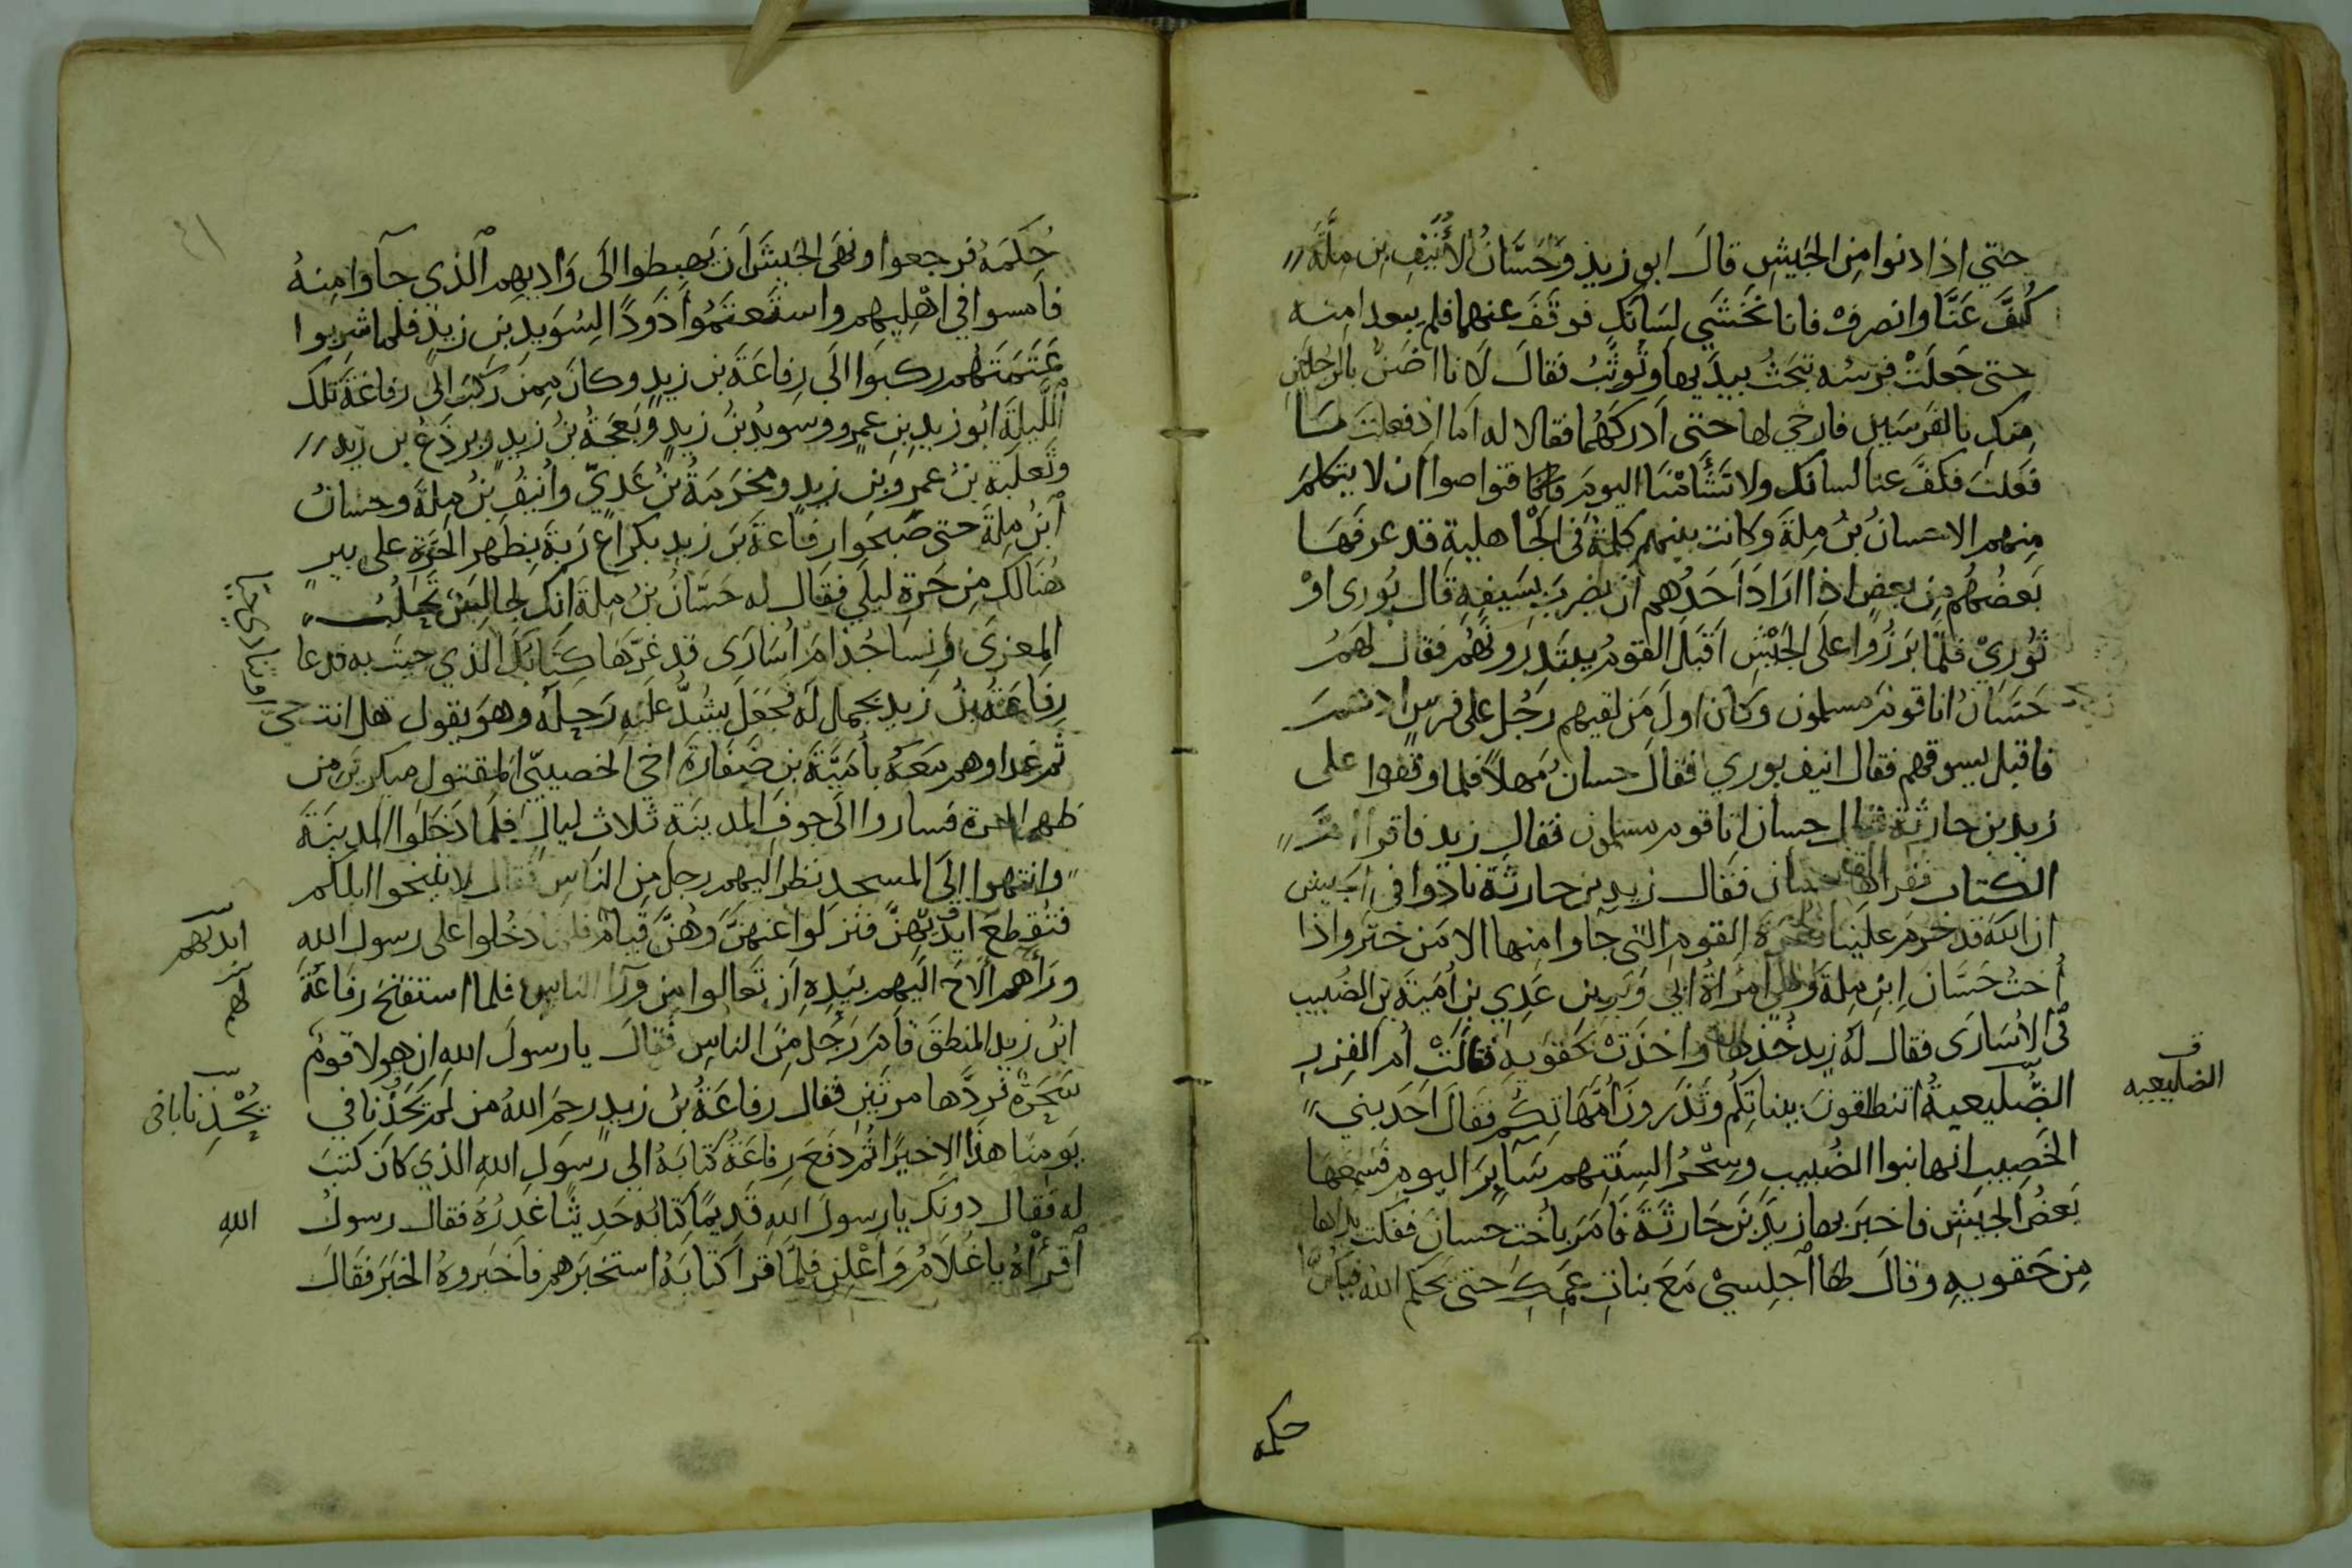 حتي اذا دنوا مِنَ الجَيشِ قالَ ابو زيدٍ وَحَسَّانُ لأُنَيفِ بنِ مِلَّةَ
كُفَّ عَنَّا وانصرِفْ فانا نَخْشَي لِسَانَكِ فوقَفَ عنهما فلم يبعدا منه
حتى جَعَلَتْ فرسُه تبحَثُ بيدَيها وتُوثِّبُ فقالَ لَانا اضَنُّ بالرجلَينِ
مِنكِ بالفَرسَيْنِ فارخي لها حتى اَدركَهُمَا فقالا له اَما اِذ فعلتَ مَا
فَعَلتَ فكفَّ عنا لسانكَ ولا تَشْأَمْنَا اليومَ فتواصوا ان لا يتكلمَ
مِنهم الا حسانُ بنُ مِلةَ وكانت بينهم كلمةٌ في الجَاهلية قد عرفَهَا
بَعضُهُم مِن بعضٍ اذا ارَادَ اَحَدُهم ان يضربَ بسَيفِهِ قال بُورى اوْ
ثُوريْ فلمّا بَرَزُوا علَى الجَيْشِ اَقبَلَ القومُ يبتَدِرونَهُم فقال لهمُ
حَسَّانُ انا قومٌ مسلمون وكانَ اولَ مَن لقيهم رَجُل على فرسٍ ادهمَ
فاقبل يسوقهم فقال انيف بوري فقالَ حسانُ مَهلاً فلما وقفوا على
زيد بن حارثة قال حسان انا قوم مسلمون فقال زيد فاقرا
الكتاب فقراها حسان فقال زيد بن حارثة نادوا في الجيش
ان الله قد حَرمَ علَينا القومِ التي جآوا منها الا مَن خترَ واذا
أُختُ حَسَّان ابنِ مِلةَ وَهي امرَاةُ ابي وَبَرِ بنِ عَدِي بنِ اُمَيَّةَ بنِ الضُبيبِ
فْي الاُسَارَى فقال لَهُ زيد خُذها وَاخَذَتْ بحَقوَيهِ فَقالَتْ أُم الفِزرِ
الضُّلَيعيةُ اتنطلقونَ ببناتِكُم وتَذَرونَ أُمَّهَاتِكُم فَقالَ اَحَد بني
الخَصِيبِ انها بنوا الضُبيب وسِحْرُ السِنَتِهم سَآيرَ اليومِ فسَمِعَهَا
بَعضُ الجَيشِ فاخبَرَ بها زيدَ بنَ حَارثَةَ فَامَرَ باُخت حسانَ ففكت يداها
مِن حَقويهِ وقالَ لها اَجلِسيْ مَعَ بناتِ عَمِّكِ حتى يَحكمَ الله فيكُنَّ
ف
الضليعيه
حكمه
حُكمَهُ فرجعوا ونهَى الجَيشَ اَن يَهبِطوا الَى وَاديهِم الَّذي جآوا مِنهُ
فامسوا في اهْلِيهم واستَعتَمُوا ذَودًا لِسُوَيدِ بنِ زيدٍ فلما شرِبوا
عَتَمَتَهُم ركبَوا الَى رِفاعَةَ بن زيدٍ وكانَ مِمن رَكبَ الى رفاعَةَ تلكَ
اللَّيلَةَ ابُو زيدِ بنِ عمرٍو وسويدُ بنُ زيدٍ وَبَعجَةُ بنُ زيدٍ وبرذَعُ بن زيد
وثعلبَةُ بنُ عمرِو بنِ زيدٍ ومخرَبَةُ بنُ عَدِيٍّ وأُنيفُ بنُ مِلةَ وحسانُ
ابنُ مِلةَ حتى صَبحَوا رفاعَةَ بنَ زيدٍ بكراعِ رَبةَ بِظَهرِ الحَرةِ على بيرٍ
هُنَالكَ مِن حَرةِ ليلَي فقال له حَسَّانُ بنُ مِلةَ انكَ لجالِسٌ تَحلُبُ
المِعزَى وَنِسَا جُذامَ اُسَارَى قد غَرَّهَا كِتابُكَ الذي جيتَ به فدعا
رِفاعَةُ بنُ زيدٍ بجمالٍ لَه فجعَلَ يشُدُّ علَيهِ رَحلَهُ وهوَ يقول هل انت حيٌّ
او تنادي حيًّا
ثم غدا وهم مَعَهُ باُمَيَّةَ بنِ ضَفَارَةَ اخي الخصيبيِّ المقتول مبكرينَ من
ظهرِ الحرة فساروا الَى جوفِ المدينَةِ ثلاثَ ليالٍ فلمَا دَخَلوا المدينَةَ
وانتهوا اِلَى المسجدِ نظرَ اليهم رجل مِنَ الناسِ فقال لا تنيخوا ابلكم
فتُقطعَ ايديَهنَّ فنزلوا عنهنَّ وَهُنَّ قِيامٌ فلما دخلوا على رسول الله
ايديهم
ورآهم اَلاحَ اليهِم بيَدِهِ اَن تعالوا مِن ورَآ الناسِ فلما استفتحَ رفَاعَةُ
لهم
ابنُ زيدٍ المنطقَ قامَ رَجُل مِنَ الناسِ فقالَ يا رسُولَ اللهِ ان هولا قومٌ
سَحَرةٌ فردَّدَها مرتَينِ فقال رَفاعَةُ بنُ زيدٍ رحمَ اللهُ من لم يَحذُنا في
يُحْذِنا با في
يَومِنَا هذَا الا خيرًا ثُم دفعَ رفاعَةُ كتابَهُ الى رَسولِ اللهِ الذي كانَ كتبَ
له فقال دونكَ يا رسولَ اللهِ قَدِيمًا كِتابُه حَديثًا غدرُهُ فقال رسولُ
اللهِ
اقرَأْهُ يا غُلامُ وَاَعْلِن فلمَّا قرَا كتابَهُ استخبَرَهم فاَخبَروهُ الخبَرَ فقَالَ